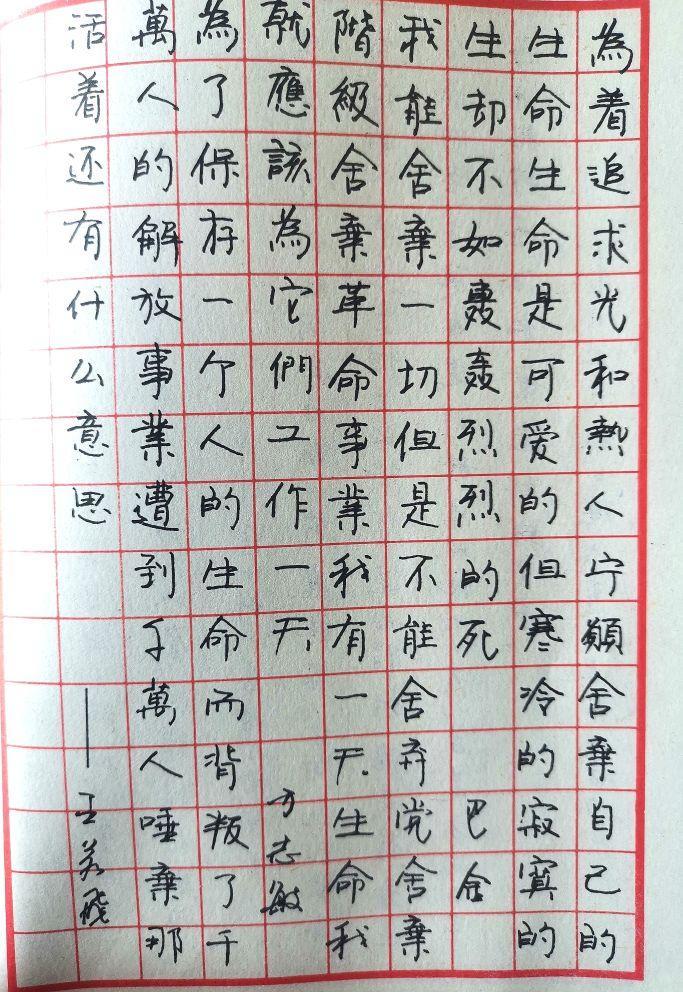 為着追求光和熱人宁願舍棄自己的
生命生命是可爱的但寒冷的寂寞的
生却不如轰轰烈烈的死 巴金
我能舍棄一切但是不能舍弃党舍棄
階級舍棄革命事業我有一天生命我
就應該為它們工作一天 方志敏
為了保存一个人的生命而背叛了千
萬人的解放事業遭到千萬人唾棄那
活着还有什么意思 ——王若飛